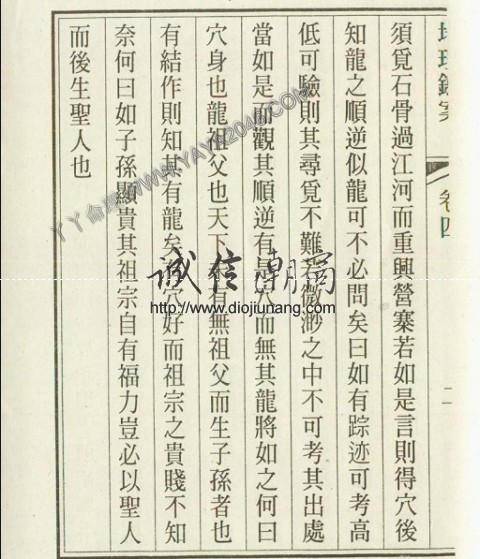 卷四
二
須覓石骨過江河而重興營寨若如是言則得穴後
知龍之順逆似龍可不必問矣曰如有踪迹可考高
低可驗則其尋覓不難若微渺之中不可考其出處
當如是而觀其順逆有是穴而無其龍將如之何曰
穴身也龍祖父也天下未有無祖父而生子孫者也
有結作則知其有龍矣有穴好而祖宗之貴賤不知
奈何曰如子孫顯貴其祖宗自有福力豈必以聖人
而後生聖人也
誠信
http://www.diojiunang.com
WWW.YAYA2048.COM